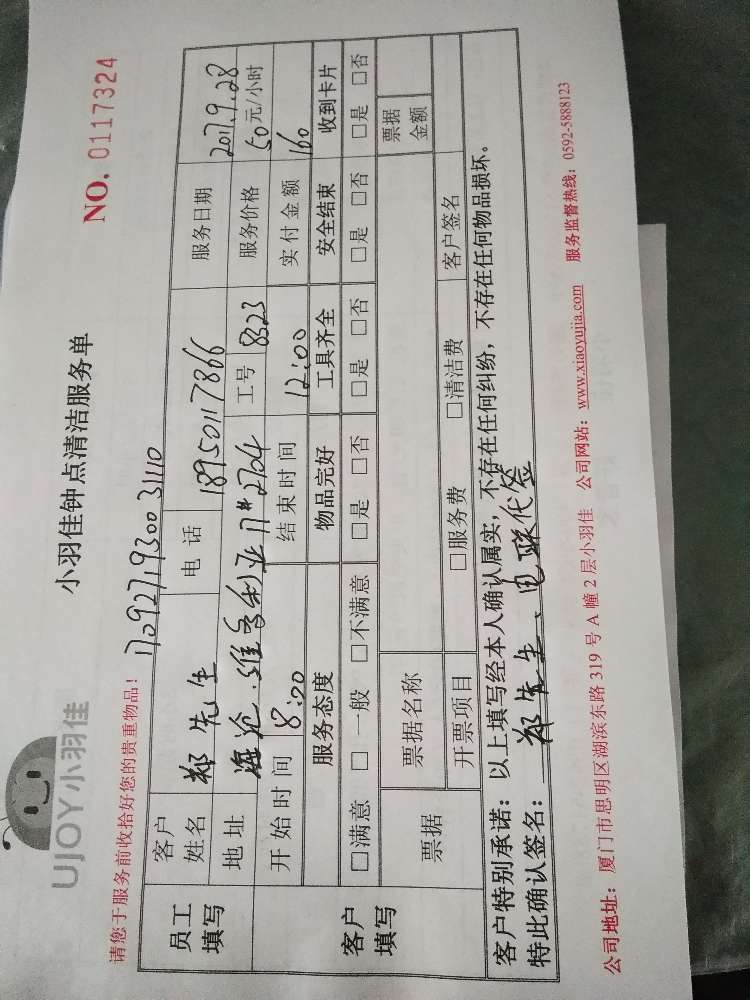 UJOY小羽佳
小羽佳钟点清洁服务单
NO. 0117324
请您于服务前收拾好您的贵重物品!
170927193003110
员工填写 客户姓名 郑先生 电话 18950117866 服务日期 2017.9.28
地址 海沧.维多利亚 11#2704 工号 8323 服务价格 50元/小时
开始时间 8:00 结束时间 12:00 实付金额 160
客户填写 服务态度 物品完好 工具齐全 安全结束 收到卡片
□满意 □一般 □不满意 □是 □否 □是 □否 □是 □否 □是 □否
票据 票据名称 票据金额
开票项目 □服务费 □清洁费 客户签名
客户特别承诺:以上填写经本人确认属实,不存在任何纠纷,不存在任何物品损坏。
特此确认签名: 郑先生、电联代签
公司地址:厦门市思明区湖滨东路 319 号 A 幢 2 层小羽佳 公司网站:www.xiaoyujia.com 服务监督热线:0592-5888123